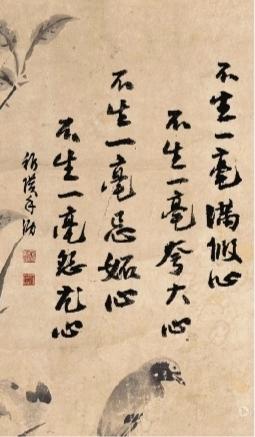 不生一毫滿假心
不生一毫夸大心
不生一毫忌妬心
不生一毫怨尤心